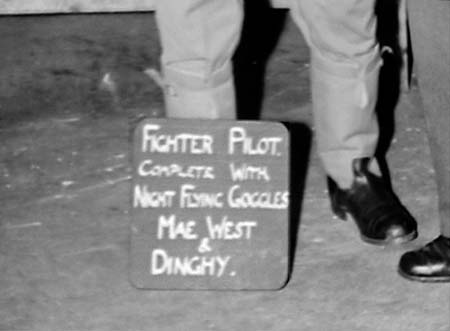 FIGHTER PILOT.
COMPLETE WITH
NIGHT FLYING GOGGLES
MAE WEST
&
DINGHY.